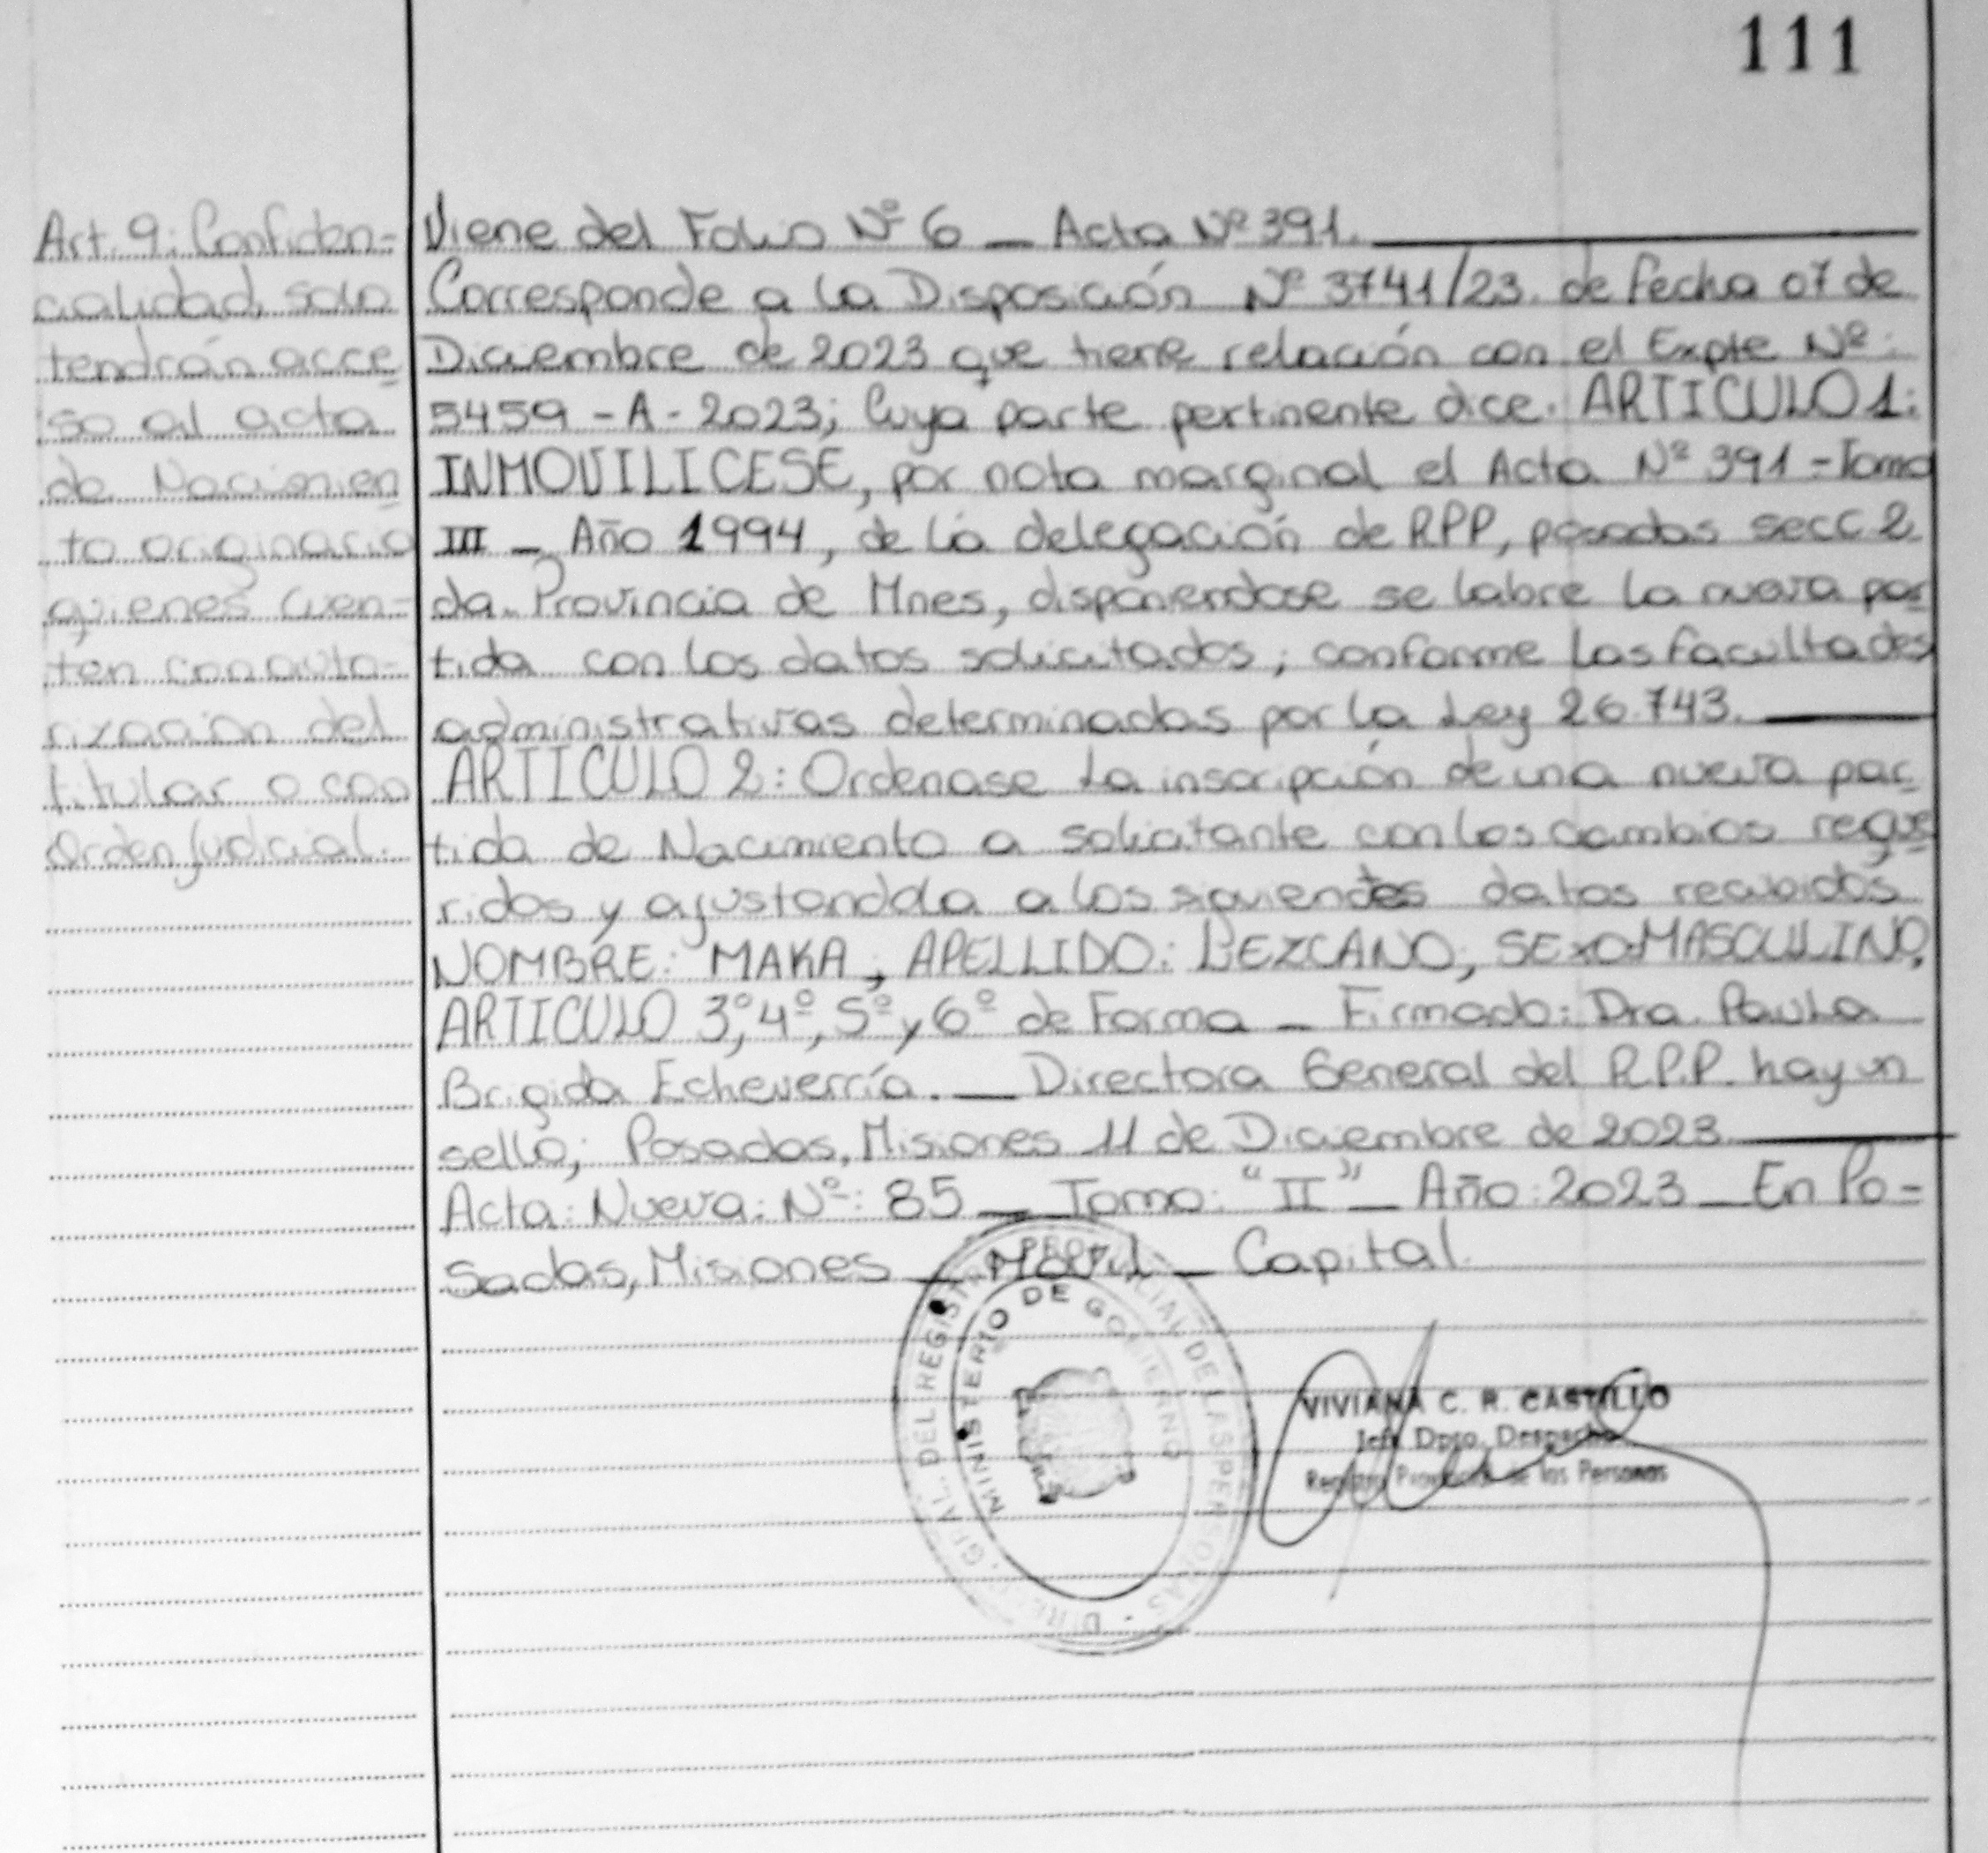 111
Art. 9: Confiden-
cialidad, solo
tendrán acce
so al acta
de Nacimien
to originario
quienes cuen-
ten con auto-
rización del
titular o con
Orden Judicial.
Viene del Folio Nº 6 _ Acta Nº 391.
Corresponde a la Disposición Nº 3741/23. de fecha 07 de
Diciembre de 2023 que tiene relación con el Expte Nº:
5459 - A - 2023; Cuya parte pertinente dice. ARTICULO 1:
INMOVILICESE, por nota marginal el Acta Nº 391 - Tomo
III _ Año 1994, de la delegación de RPP, posadas secc 2
da. Provincia de Mnes, disponiendose se labre la nueva par
tida con los datos solicitados; conforme las facultades
administrativas determinadas por la Ley 26.743.
ARTICULO 2: Ordenase la inscripción de una nueva par
tida de Nacimiento a solicitante con los cambios reque
ridos y ajustandola a los siguientes datos recibidos
NOMBRE: MAKA, APELLIDO: LEZCANO, SEXO: MASCULINO.
ARTICULO 3º, 4º, 5º y 6º de Forma _ Firmado: Dra. Paula
Brigida Echeverría. _ Directora General del R.P.P. hay un
sello; Posadas, Misiones 11 de Diciembre de 2023.
Acta: Nueva: Nº: 85 _ Tomo: "II" _ Año: 2023 _ En Po-
sadas, Misiones _ Móvil _ Capital.
MINISTERIO DE GOBIERNO
GRAL. DEL REGISTRO PROVINCIAL DE LAS PERSONAS
VIVIANA C. R. CASTILLO
Jefe Dpto. Despacho
Registro Provincial de las Personas